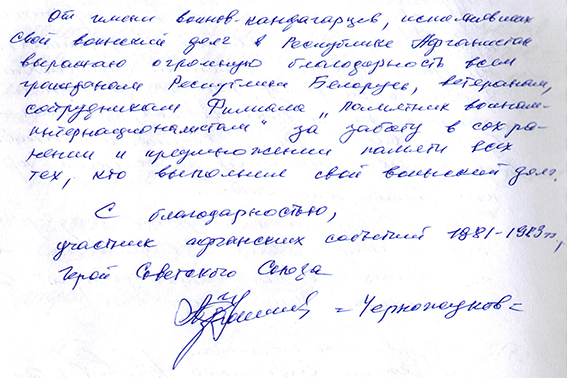 От имени воинов-кандагарцев, исполнявших
свой воинский долг в Республике Афганистан
выражаю огромную благодарность всем
гражданам Республики Белорусь, ветеранам,
сотрудникам Филиала „Памятник воинам-
интернационалистам“ за заботу в сохра-
нении и преумножении памяти всех
тех, кто выполнил свой воинский долг.
С благодарностью,
участник афганских событий 1981-1983гг.,
Герой Советского Союза
=Черножуков=